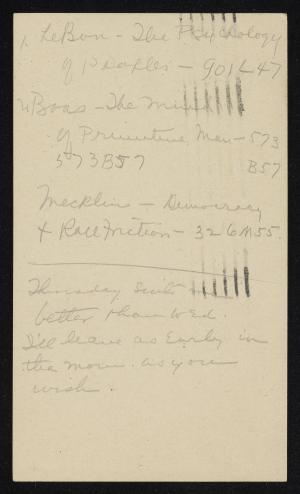 1. LeBon - The Psychology
of Peoples - 901L47
2. Boas - The Mind
of Primitive Man - 573
573B57 B57
Mecklin - Democracy
& Race Friction - 326M55.
Thursday suits me
better than Wed.
I'll leave as Early in
the morn. as you
wish.